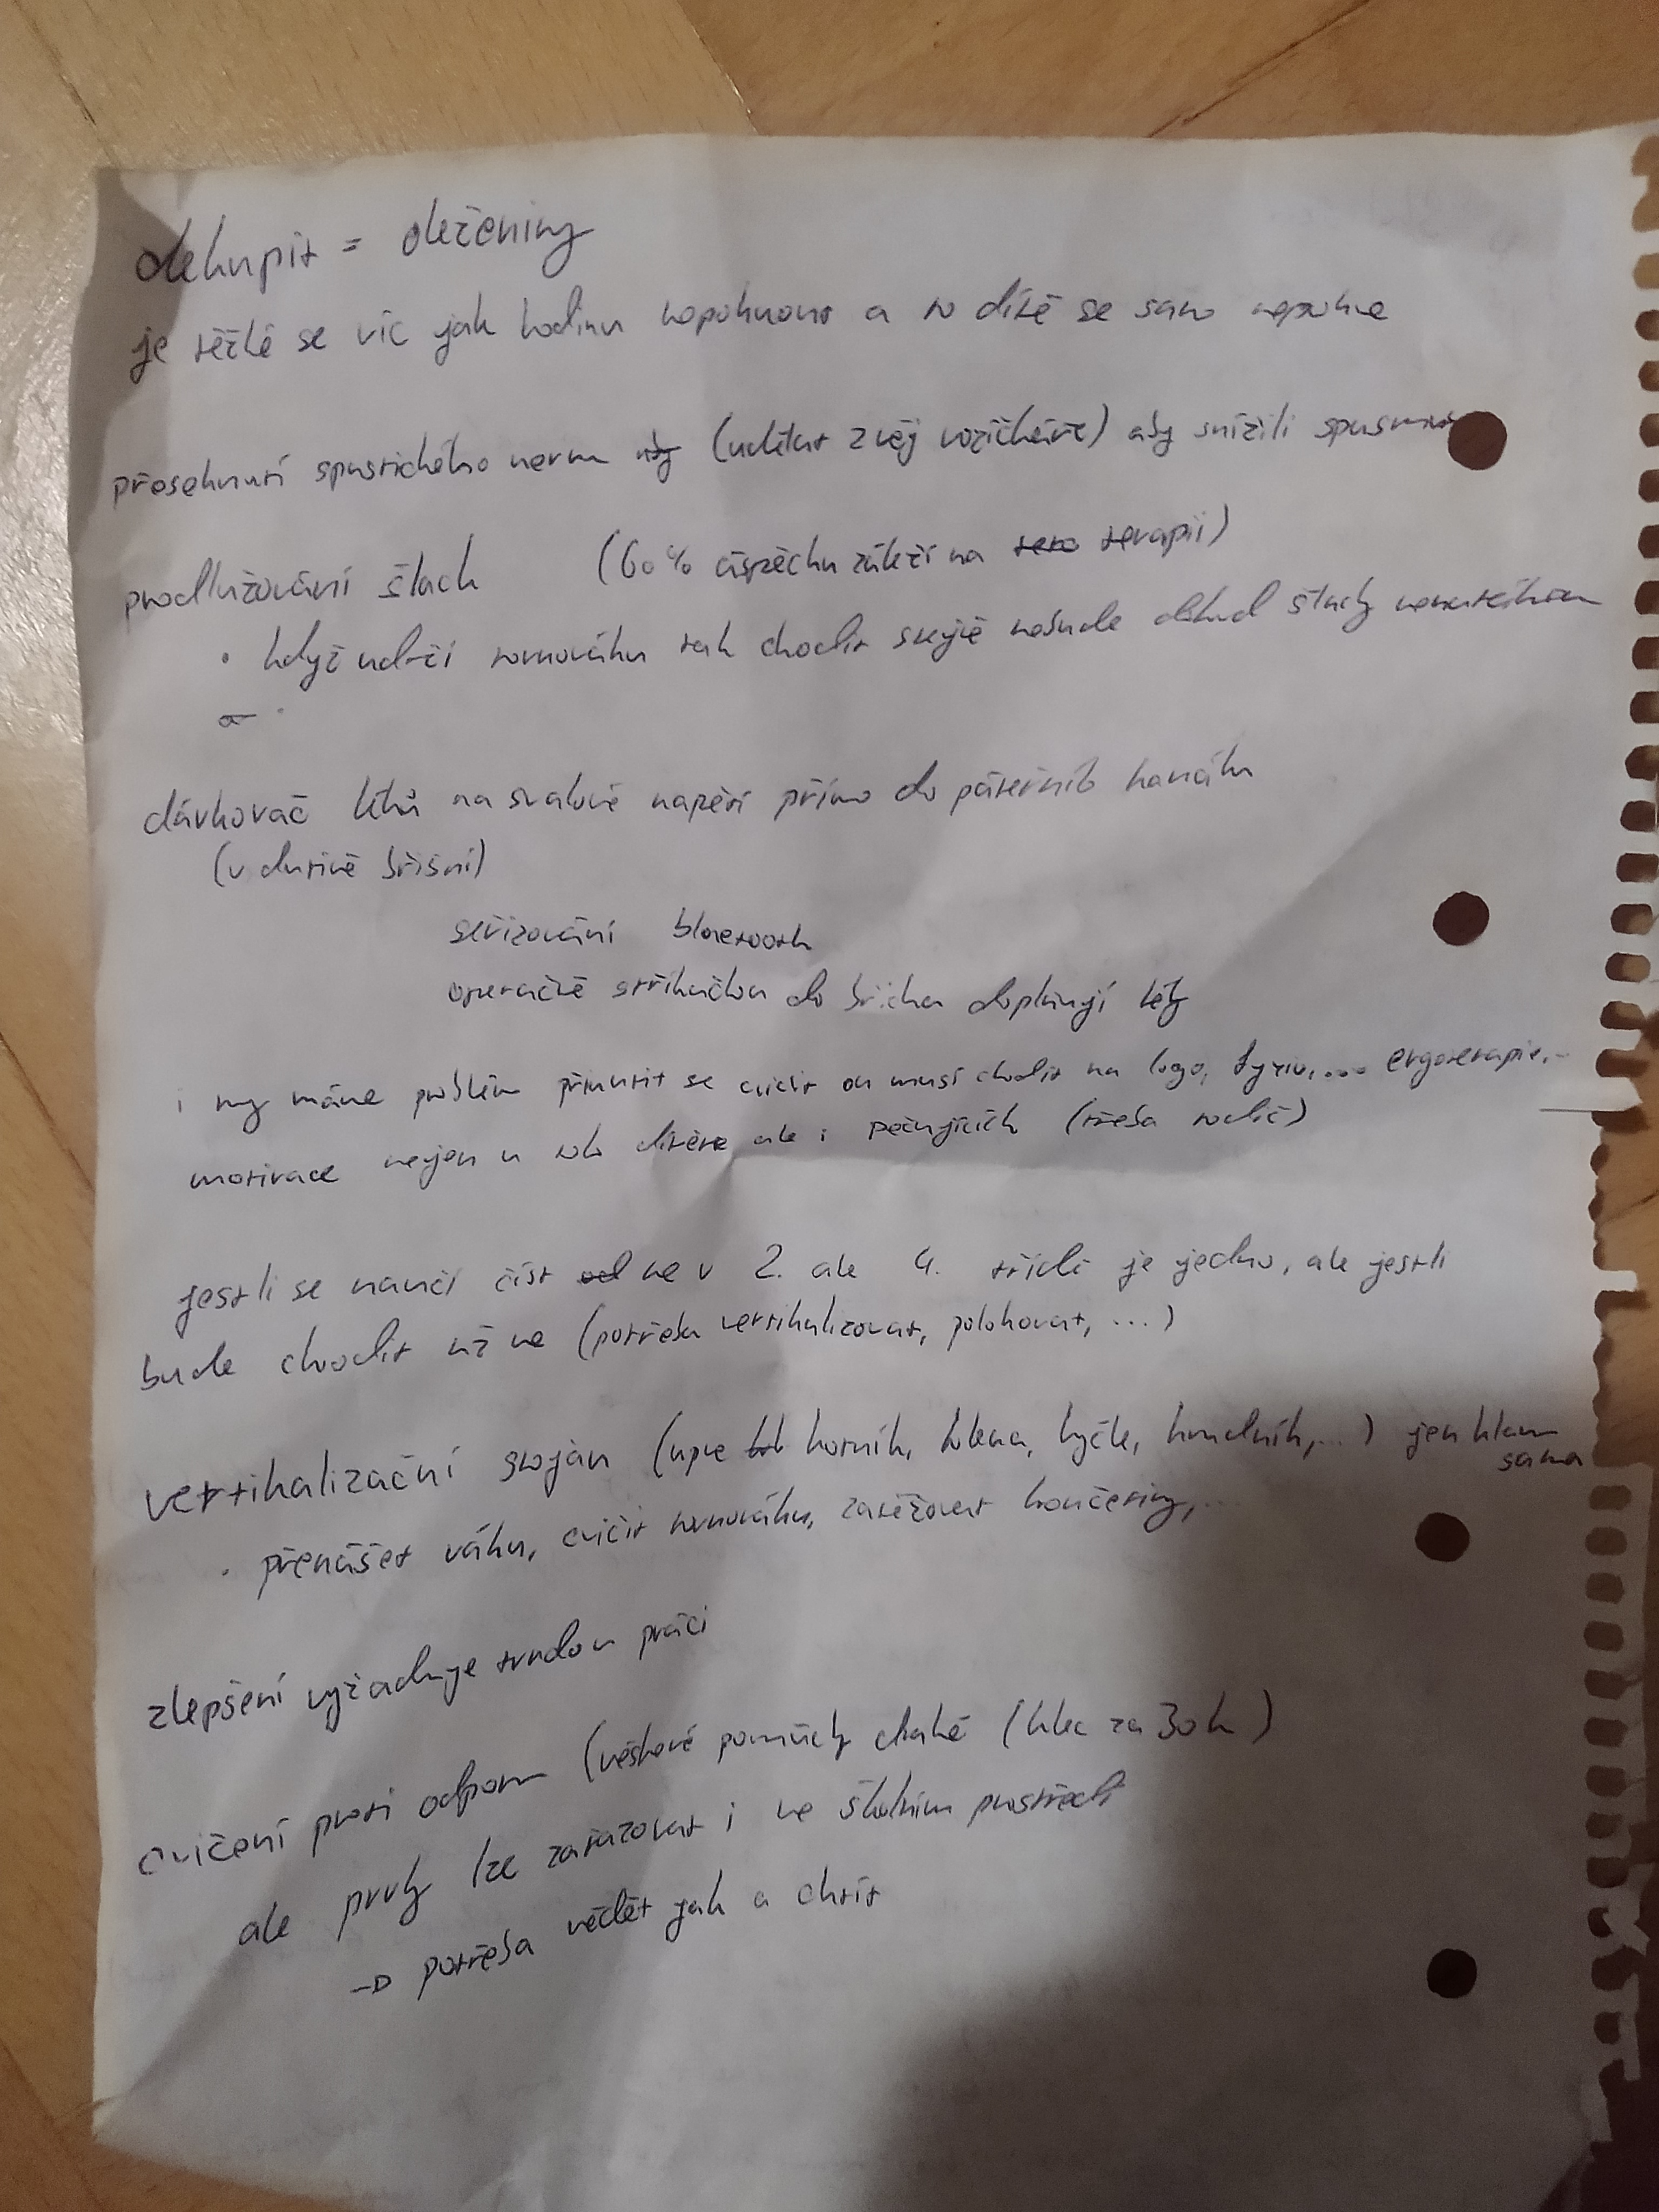 dekupit = oleženiny
je těžké se víc jak hodinu nepohnout a to dítě se samo nepohne
přeseknutí spastického nervu aby (udělat z něj vozíčkáře) aby snížili
prodlužování šlach (60% úspěchu záleží na tera terapii)
• když udrží rovnováhu tak chodit stejně nebude dokud šlachy
dávkovač léků na svalové napětí přímo do páteřníh kanálu
(v dutině břišní)
seřizování bluetooth
operačně stříkačkou do břicha doplňují léky
i my máme problém přinutit se cvičit on musí chodit na logo, fyzio,... ergoterapie,..
motivace nejen u toho dítěte ale i pečujících (třeba rodič)
jestli se naučí číst ne v 2. ale 4. třídě je jedno, ale jestli
bude chodit už ne (potřeba vertikalizovat, polohovat, ...)
vertikalizační stojan (upne kotník, kolena, kyčle, hrudník,...) jen hlava
sama
• přenášet váhu, cvičit rovnováhu, zatěžovat končetiny,...
zlepšení vyžaduje tvrdou práci
cvičení proti odporu (věškeré pomůcky drahé (klec za 30k)
ale prvky lze zařazovat i ve školním prostředí
→ potřeba vědět jak a chtít